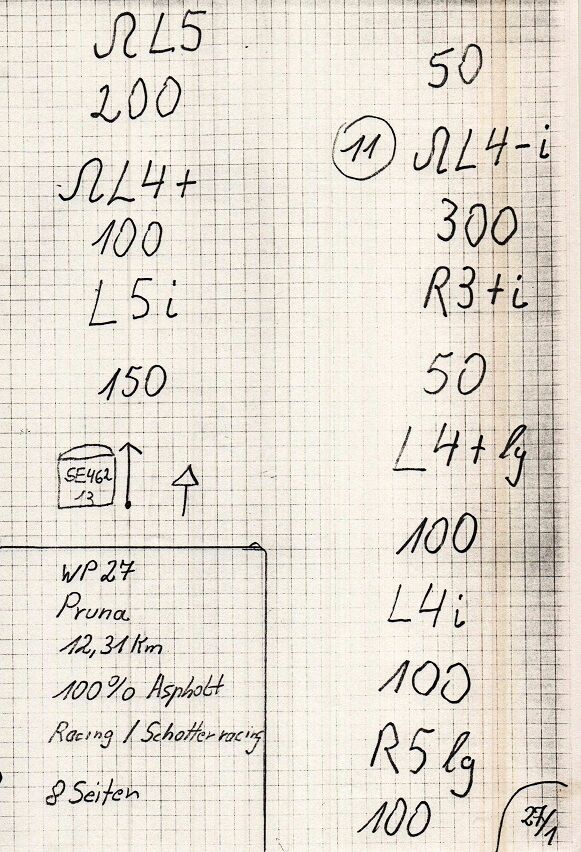 ΩL5
200
ΩL4+
100
L5i
150
SE462
13
WP27
Pruna
12,31Km
100% Asphalt
Racing / Schotterracing
8 Seiten
50
11 ΩL4-i
300
R3+i
50
L4+lg
100
L4i
100
R5lg
100
27/1